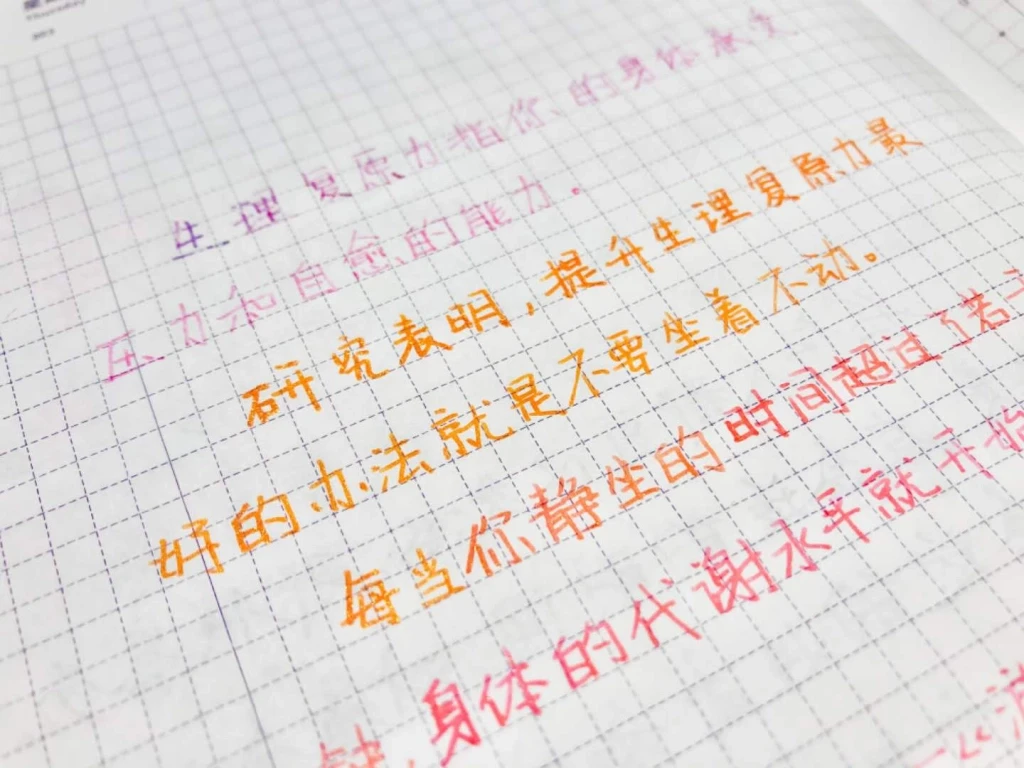 Thursday
生理复原力指你的身体承受
压力和自愈的能力。
研究表明，提升生理复原力最
好的办法就是不要坐着不动。
每当你静坐的时间超过了若干
钟，身体的代谢水平就开始